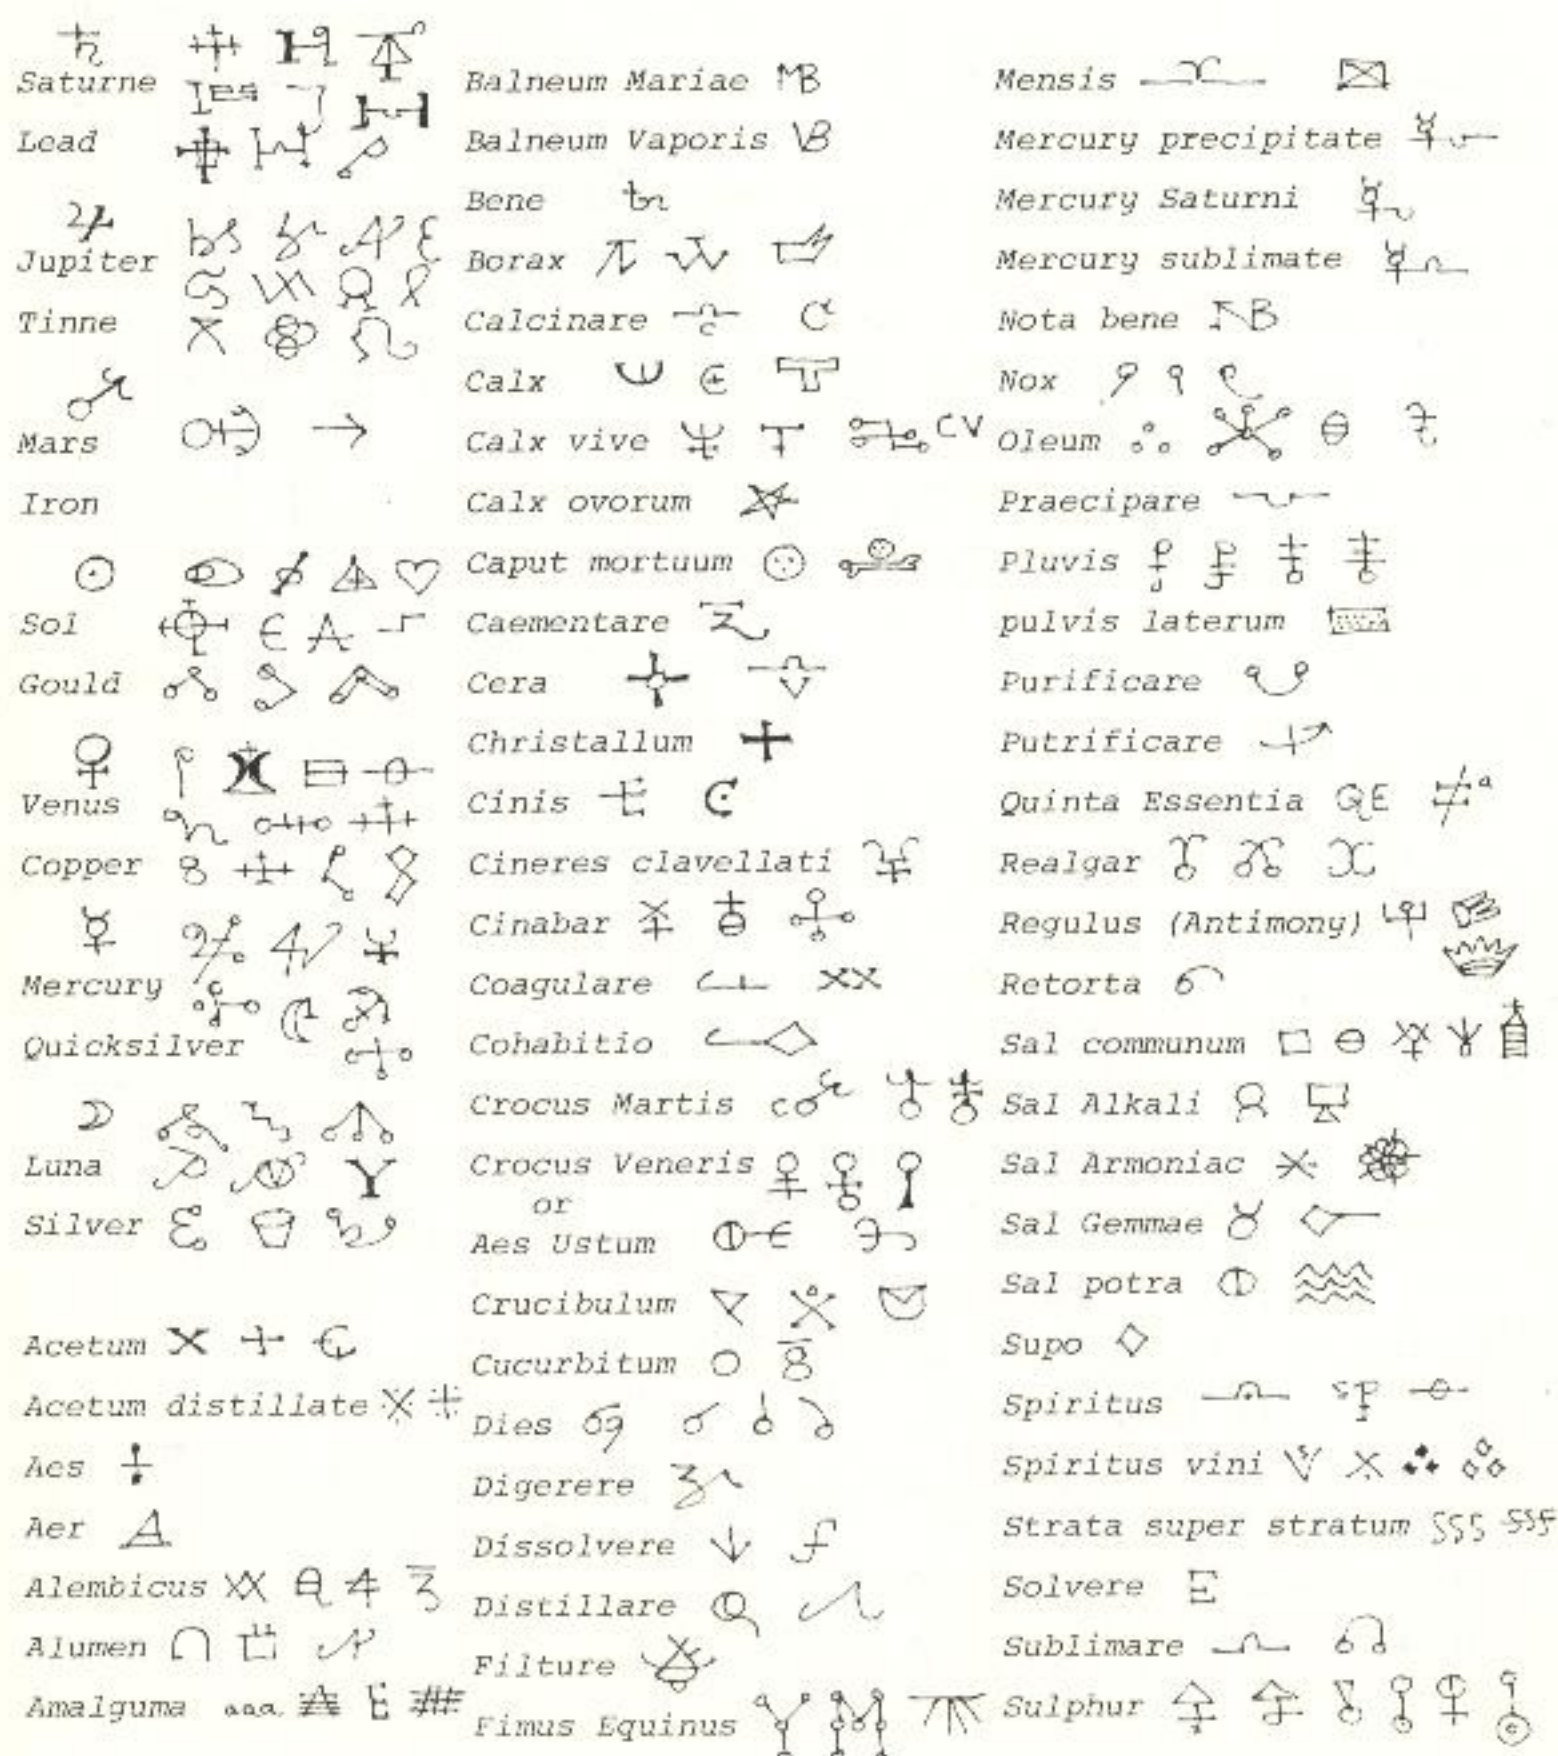 Saturne
Lead
Jupiter
Tinne
Mars
Iron
Sol
Gould
Venus
Copper
Mercury
Quicksilver
Luna
Silver
Acetum
Acetum distillate
Aes
Aer
Alembicus
Alumen
Amalguma aaa
Balneum Mariae MB
Balneum Vaporis VB
Bene
Borax
Calcinare
Calx
Calx vive CV
Calx ovorum
Caput mortuum
Caementare
Cera
Christallum
Cinis
Cineres clavellati
Cinabar
Coagulare xx
Cohabitio
Crocus Martis
Crocus Veneris
or
Aes Ustum
Crucibulum
Cucurbitum
Dies
Digerere
Dissolvere
Distillare
Filture
Fimus Equinus
Mensis
Mercury precipitate
Mercury Saturni
Mercury sublimate
Nota bene NB
Nox
Oleum
Praecipare
Pluvis
pulvis laterum
Purificare
Putrificare
Quinta Essentia QE
Realgar
Regulus (Antimony)
Retorta
Sal communum
Sal Alkali
Sal Armoniac
Sal Gemmae
Sal potra
Supo
Spiritus
Spiritus vini
Strata super stratum SSS SSS
Solvere E
Sublimare
Sulphur